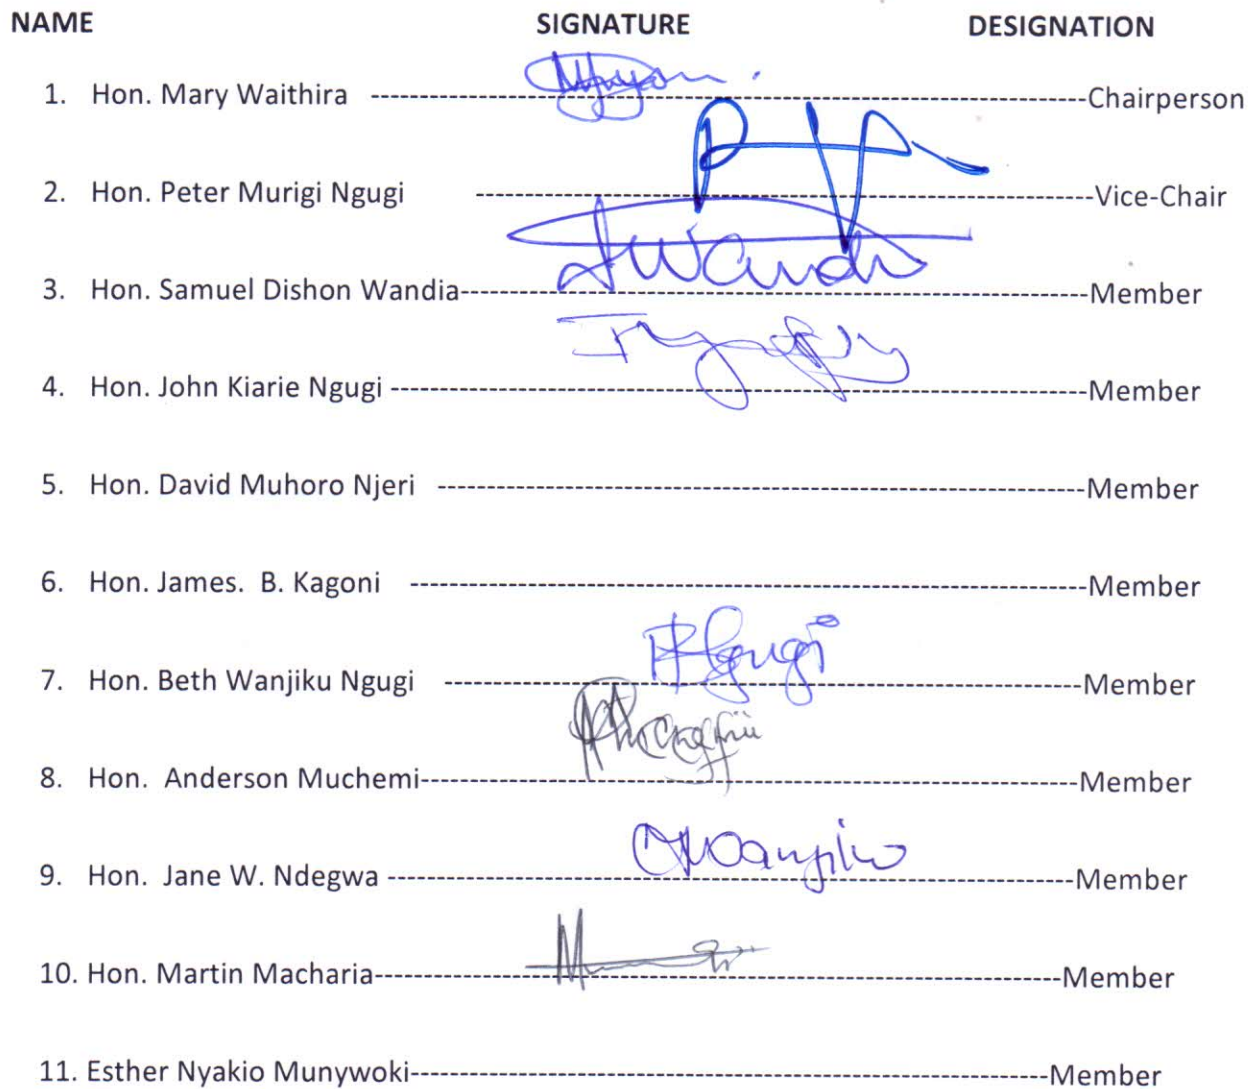 NAME SIGNATURE DESIGNATION
1. Hon. Mary Waithira ----------Chairperson
2. Hon. Peter Murigi Ngugi ----------Vice-Chair
3. Hon. Samuel Dishon Wandia----------Member
4. Hon. John Kiarie Ngugi ----------Member
5. Hon. David Muhoro Njeri ----------Member
6. Hon. James. B. Kagoni ----------Member
7. Hon. Beth Wanjiku Ngugi ----------Member
8. Hon. Anderson Muchemi----------Member
9. Hon. Jane W. Ndegwa ----------Member
10. Hon. Martin Macharia----------Member
11. Esther Nyakio Munywoki----------Member